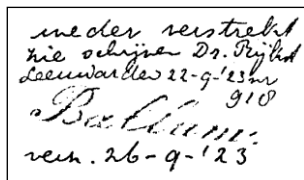 in eder verstrekt
zie schrijven Dr. Rijks
Leeuwarden 22-9-'23 nr
918
verz. 26-9-'23